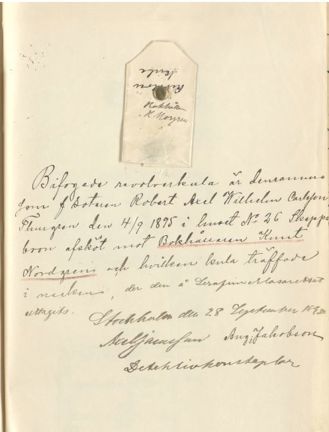 Revolver
kula
Bokhållaren
K. Norgren
Bifogade revolverkula är densamma
som f dotaren Robert Axel Wilhelm Carlsson
Thungren den 4/9 1895 i huset No 26 Skepps
bron afsköt mot Bokhållaren Knut
Nordgren och hvilken kula träffade
i nacken, der den å Serafimerlasarettet
uttagits.
Stockholm den 28 September 1895
Ang. Jakobson
Detektivkonstaplar